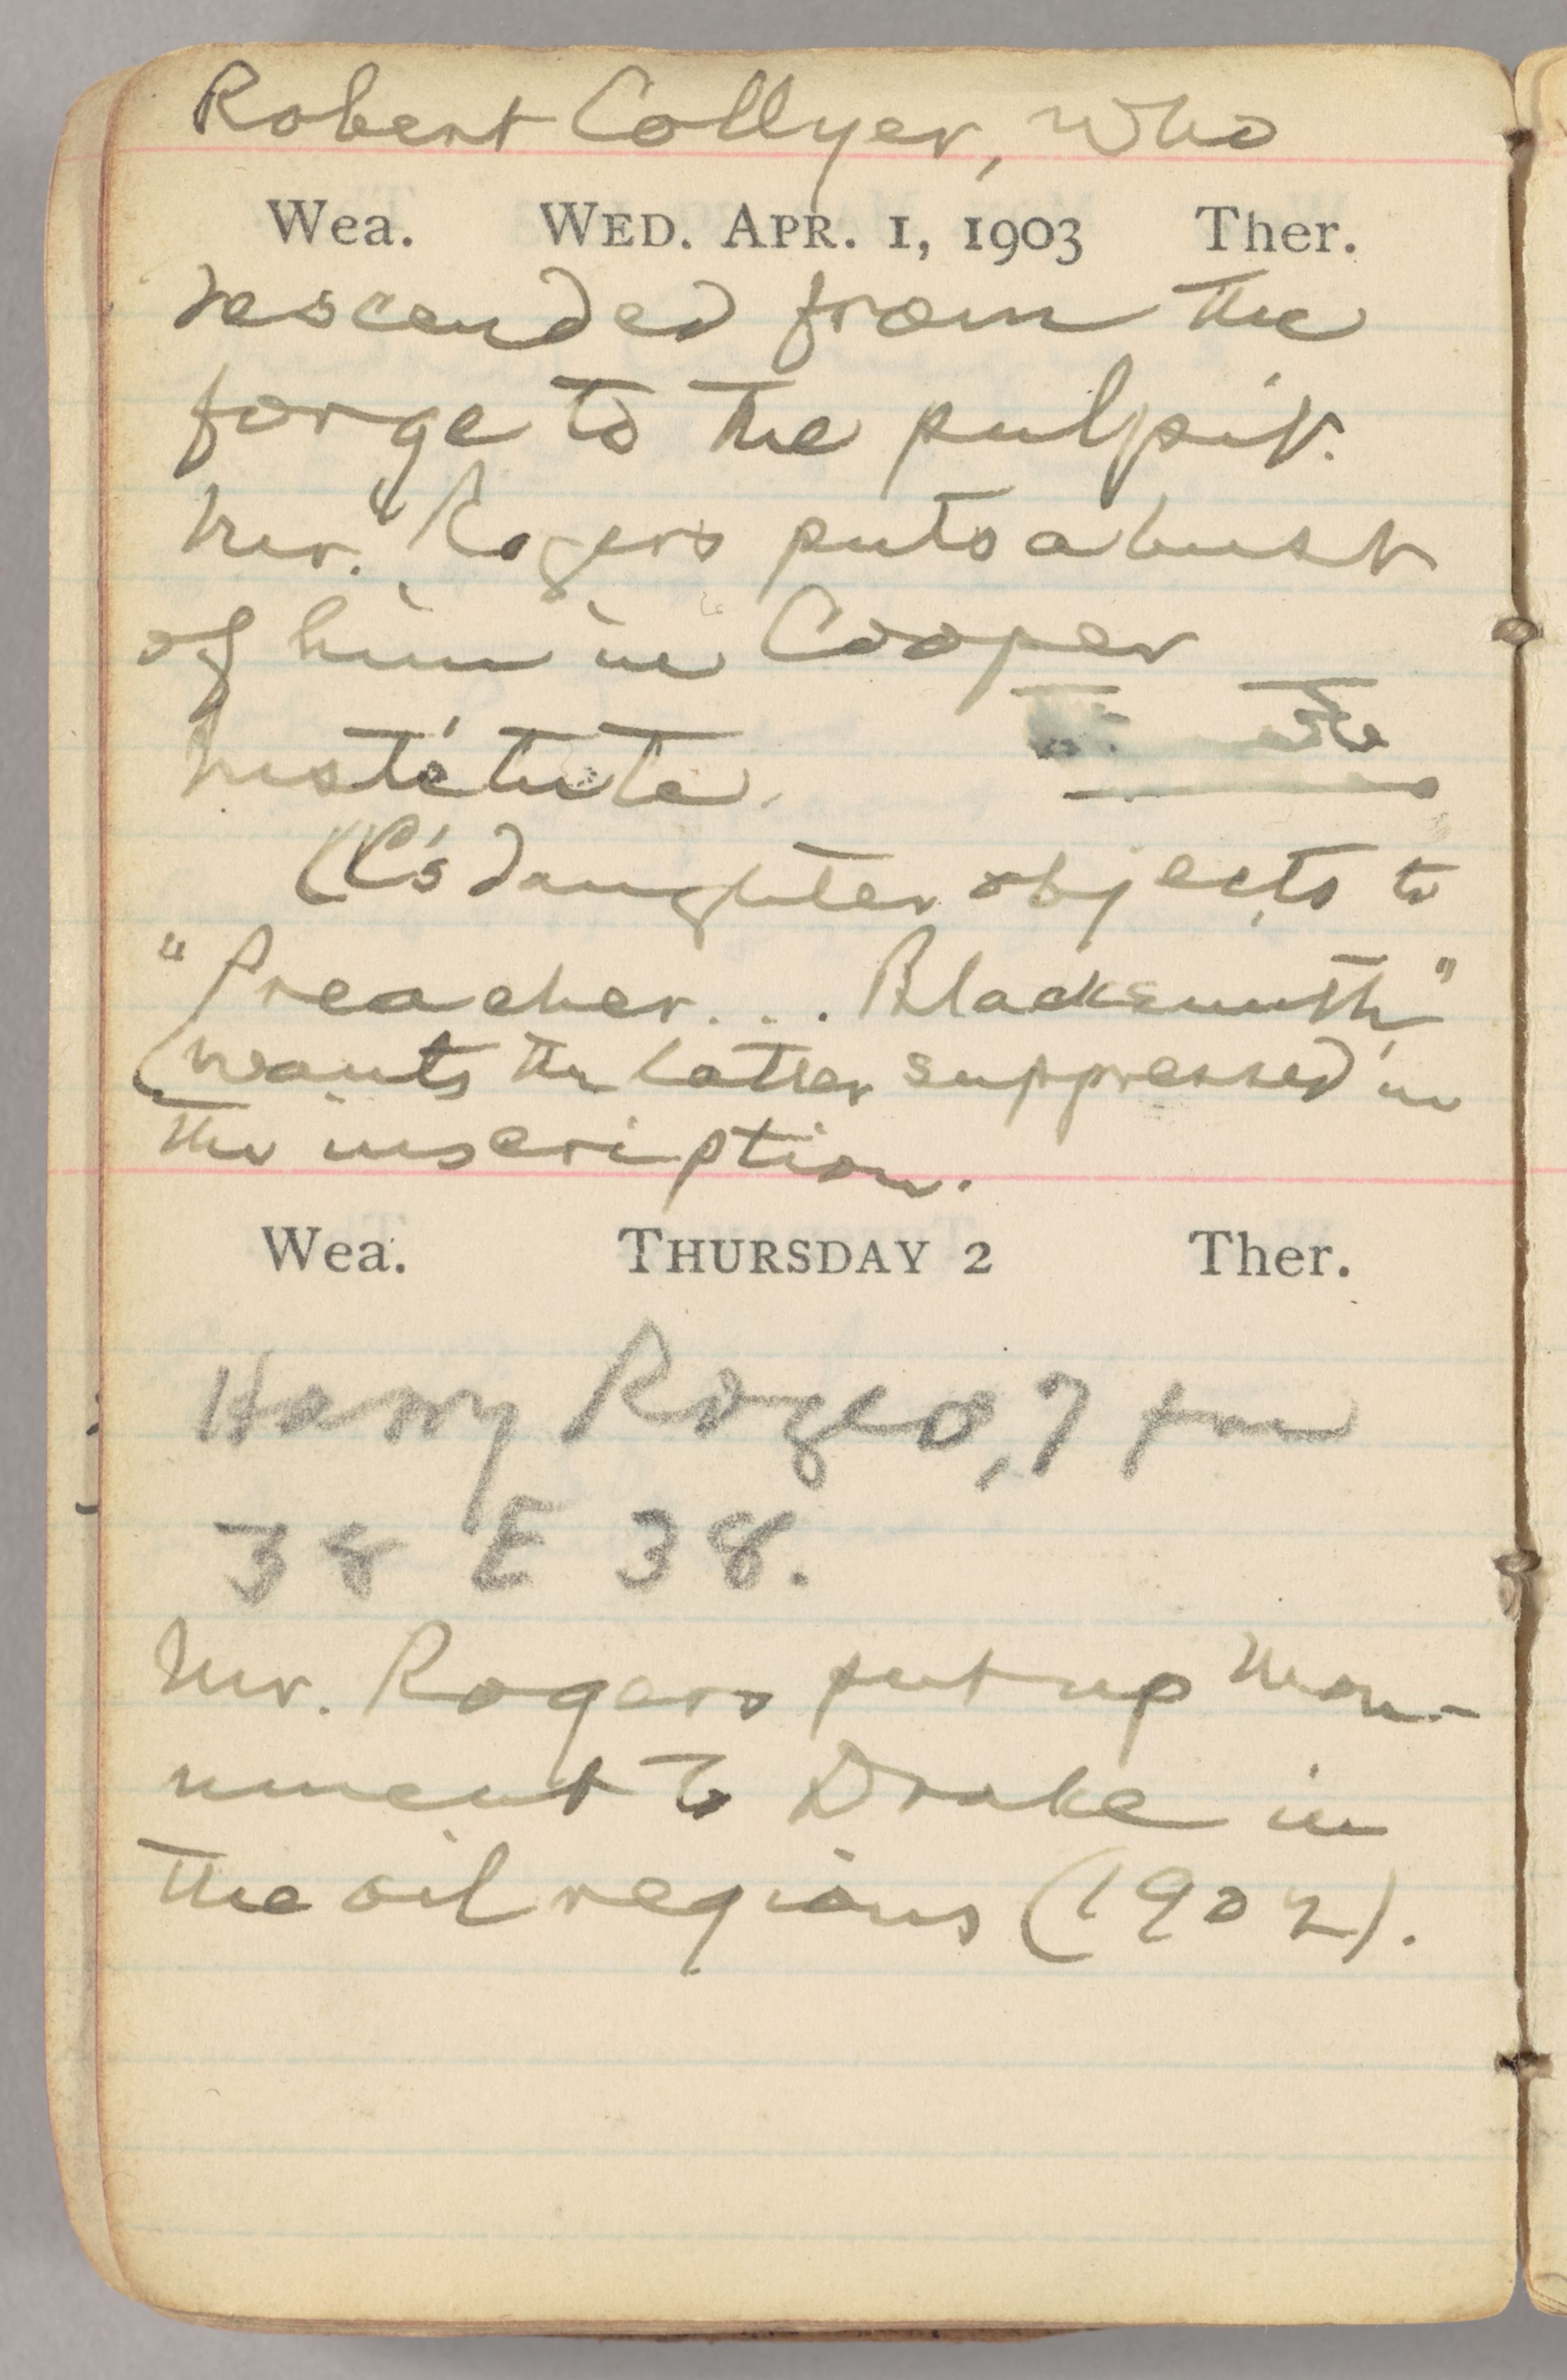 Robert Collyer, who
Wea. WED. APR. 1, 1903 Ther.
descended from the
forge to the pulpit.
Mr. Rogers puts a bust
of him in Cooper
Institute.
(C's daughter objects to
"Preacher . . . Blacksmith"
(wants the latter suppressed in
the inscription.
Wea. THURSDAY 2 Ther.
Harry Rogers, 7
38 E 38.
Mr. Rogers put up mon-
ument to Drake in
the oil regions (1902).